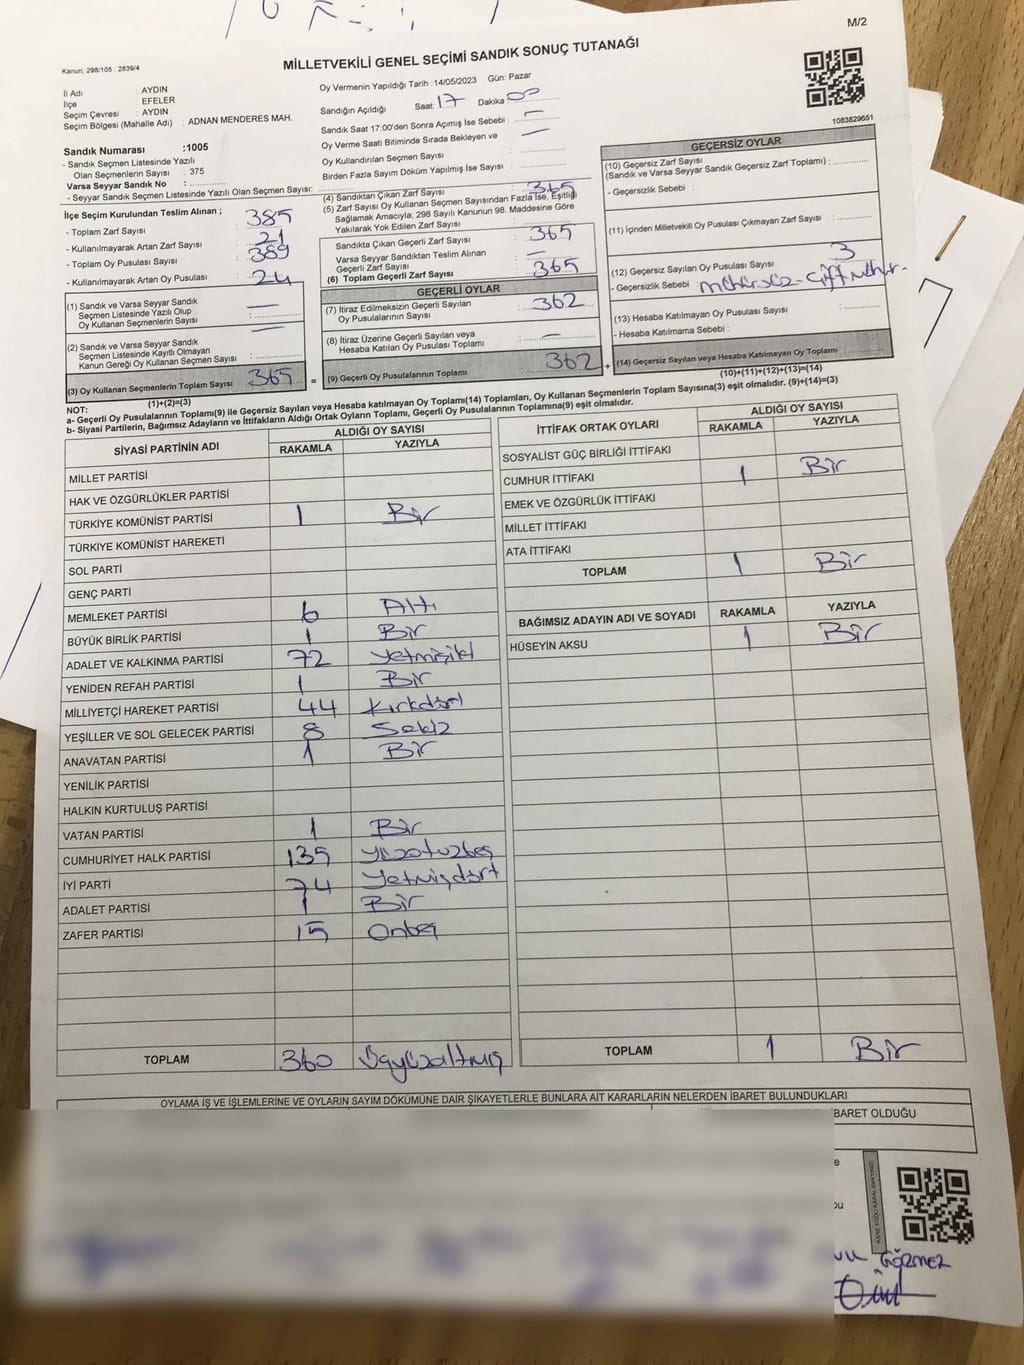 M/2
MİLLETVEKİLİ GENEL SEÇİMİ SANDIK SONUÇ TUTANAĞI
Kanun; 298/105 . 2839/4
İl Adı : AYDIN
İlçe : EFELER
Seçim Çevresi : AYDIN
Seçim Bölgesi (Mahalle Adı) : ADNAN MENDERES MAH.
Sandık Numarası :1005
- Sandık Seçmen Listesinde Yazılı
Olan Seçmenlerin Sayısı : 375
Varsa Seyyar Sandık No :
- Seyyar Sandık Seçmen Listesinde Yazılı Olan Seçmen Sayısı:
İlçe Seçim Kurulundan Teslim Alınan ;
- Toplam Zarf Sayısı : 385
- Kullanılmayarak Artan Zarf Sayısı : 21
- Toplam Oy Pusulası Sayısı : 389
- Kullanılmayarak Artan Oy Pusulası : 24
(1) Sandık ve Varsa Seyyar Sandık
Seçmen Listesinde Yazılı Olup
Oy Kullanan Seçmenlerin Sayısı : —
(2) Sandık ve Varsa Seyyar Sandık
Seçmen Listesinde Kayıtlı Olmayan
Kanun Gereği Oy Kullanan Seçmen Sayısı : —
(3) Oy Kullanan Seçmenlerin Toplam Sayısı 365
(1)+(2)=(3)
Oy Vermenin Yapıldığı Tarih : 14/05/2023 Gün: Pazar
Sandığın Açıldığı Saat: 17 Dakika 00
Sandık Saat 17:00'den Sonra Açımış İse Sebebi : —
Oy Verme Saati Bitiminde Sırada Bekleyen ve
Oy Kullandırılan Seçmen Sayısı : —
Birden Fazla Sayım Döküm Yapılmış İse Sayısı :
(4) Sandıktan Çıkan Zarf Sayısı : 365
(5) Zarf Sayısı Oy Kullanan Seçmen Sayısından Fazla İse, Eşitliği
Sağlamak Amacıyla; 298 Sayılı Kanunun 98. Maddesine Göre
Yakılarak Yok Edilen Zarf Sayısı :
Sandıkta Çıkan Geçerli Zarf Sayısı : 365
Varsa Seyyar Sandıktan Teslim Alınan
Geçerli Zarf Sayısı : —
(6) Toplam Geçerli Zarf Sayısı : 365
GEÇERLİ OYLAR
(7) İtiraz Edilmeksizin Geçerli Sayılan
Oy Pusulalarının Sayısı : 362
(8) İtiraz Üzerine Geçerli Sayılan veya
Hesaba Katılan Oy Pusulası Toplamı : —
= (9) Geçerli Oy Pusulalarının Toplamı : 362 +
1083829651
GEÇERSİZ OYLAR
(10) Geçersiz Zarf Sayısı
(Sandık ve Varsa Seyyar Sandık Geçersiz Zarf Toplamı) :
- Geçersizlik Sebebi :
(11) İçinden Milletvekili Oy Pusulası Çıkmayan Zarf Sayısı :
(12) Geçersiz Sayılan Oy Pusulası Sayısı : 3
- Geçersizlik Sebebi : mühürsüz - çift mühür.
(13) Hesaba Katılmayan Oy Pusulası Sayısı :
- Hesaba Katılmama Sebebi :
(14) Geçersiz Sayılan veya Hesaba Katılmayan Oy Toplamı :
(10)+(11)+(12)+(13)=(14)
NOT:
a- Geçerli Oy Pusulalarının Toplamı(9) ile Geçersiz Sayılan veya Hesaba katılmayan Oy Toplamı(14) Toplamları, Oy Kullanan Seçmenlerin Toplam Sayısına(3) eşit olmalıdır. (9)+(14)=(3)
b- Siyasi Partilerin, Bağımsız Adayların ve İttifakların Aldığı Ortak Oyların Toplamı, Geçerli Oy Pusulalarının Toplamına(9) eşit olmalıdır.
SİYASİ PARTİNİN ADI ALDIĞI OY SAYISI
RAKAMLA YAZIYLA
MİLLET PARTİSİ
HAK VE ÖZGÜRLÜKLER PARTİSİ
TÜRKİYE KOMÜNİST PARTİSİ 1 Bir
TÜRKİYE KOMÜNİST HAREKETİ
SOL PARTİ
GENÇ PARTİ
MEMLEKET PARTİSİ 6 Altı
BÜYÜK BİRLİK PARTİSİ 1 Bir
ADALET VE KALKINMA PARTİSİ 72 Yetmişiki
YENİDEN REFAH PARTİSİ 1 Bir
MİLLİYETÇİ HAREKET PARTİSİ 44 Kırkdört
YEŞİLLER VE SOL GELECEK PARTİSİ 8 Sekiz
ANAVATAN PARTİSİ 1 Bir
YENİLİK PARTİSİ
HALKIN KURTULUŞ PARTİSİ
VATAN PARTİSİ 1 Bir
CUMHURİYET HALK PARTİSİ 135 Yüzotuzbeş
İYİ PARTİ 74 Yetmişdört
ADALET PARTİSİ 1 Bir
ZAFER PARTİSİ 15 Onbeş
TOPLAM 360 Üçyüzaltmış
İTTİFAK ORTAK OYLARI ALDIĞI OY SAYISI
RAKAMLA YAZIYLA
SOSYALİST GÜÇ BİRLİĞİ İTTİFAKI
CUMHUR İTTİFAKI 1 Bir
EMEK VE ÖZGÜRLÜK İTTİFAKI
MİLLET İTTİFAKI
ATA İTTİFAKI
TOPLAM 1 Bir
BAĞIMSIZ ADAYIN ADI VE SOYADI RAKAMLA YAZIYLA
HÜSEYİN AKSU 1 Bir
TOPLAM 1 Bir
OYLAMA İŞ VE İŞLEMLERİNE VE OYLARIN SAYIM DÖKÜMÜNE DAİR ŞİKAYETLERLE BUNLARA AİT KARARLARIN NELERDEN İBARET BULUNDUKLARI
BARET OLDUĞU
KARE KODU KARALAMAYINIZ!
GÖRMEZ